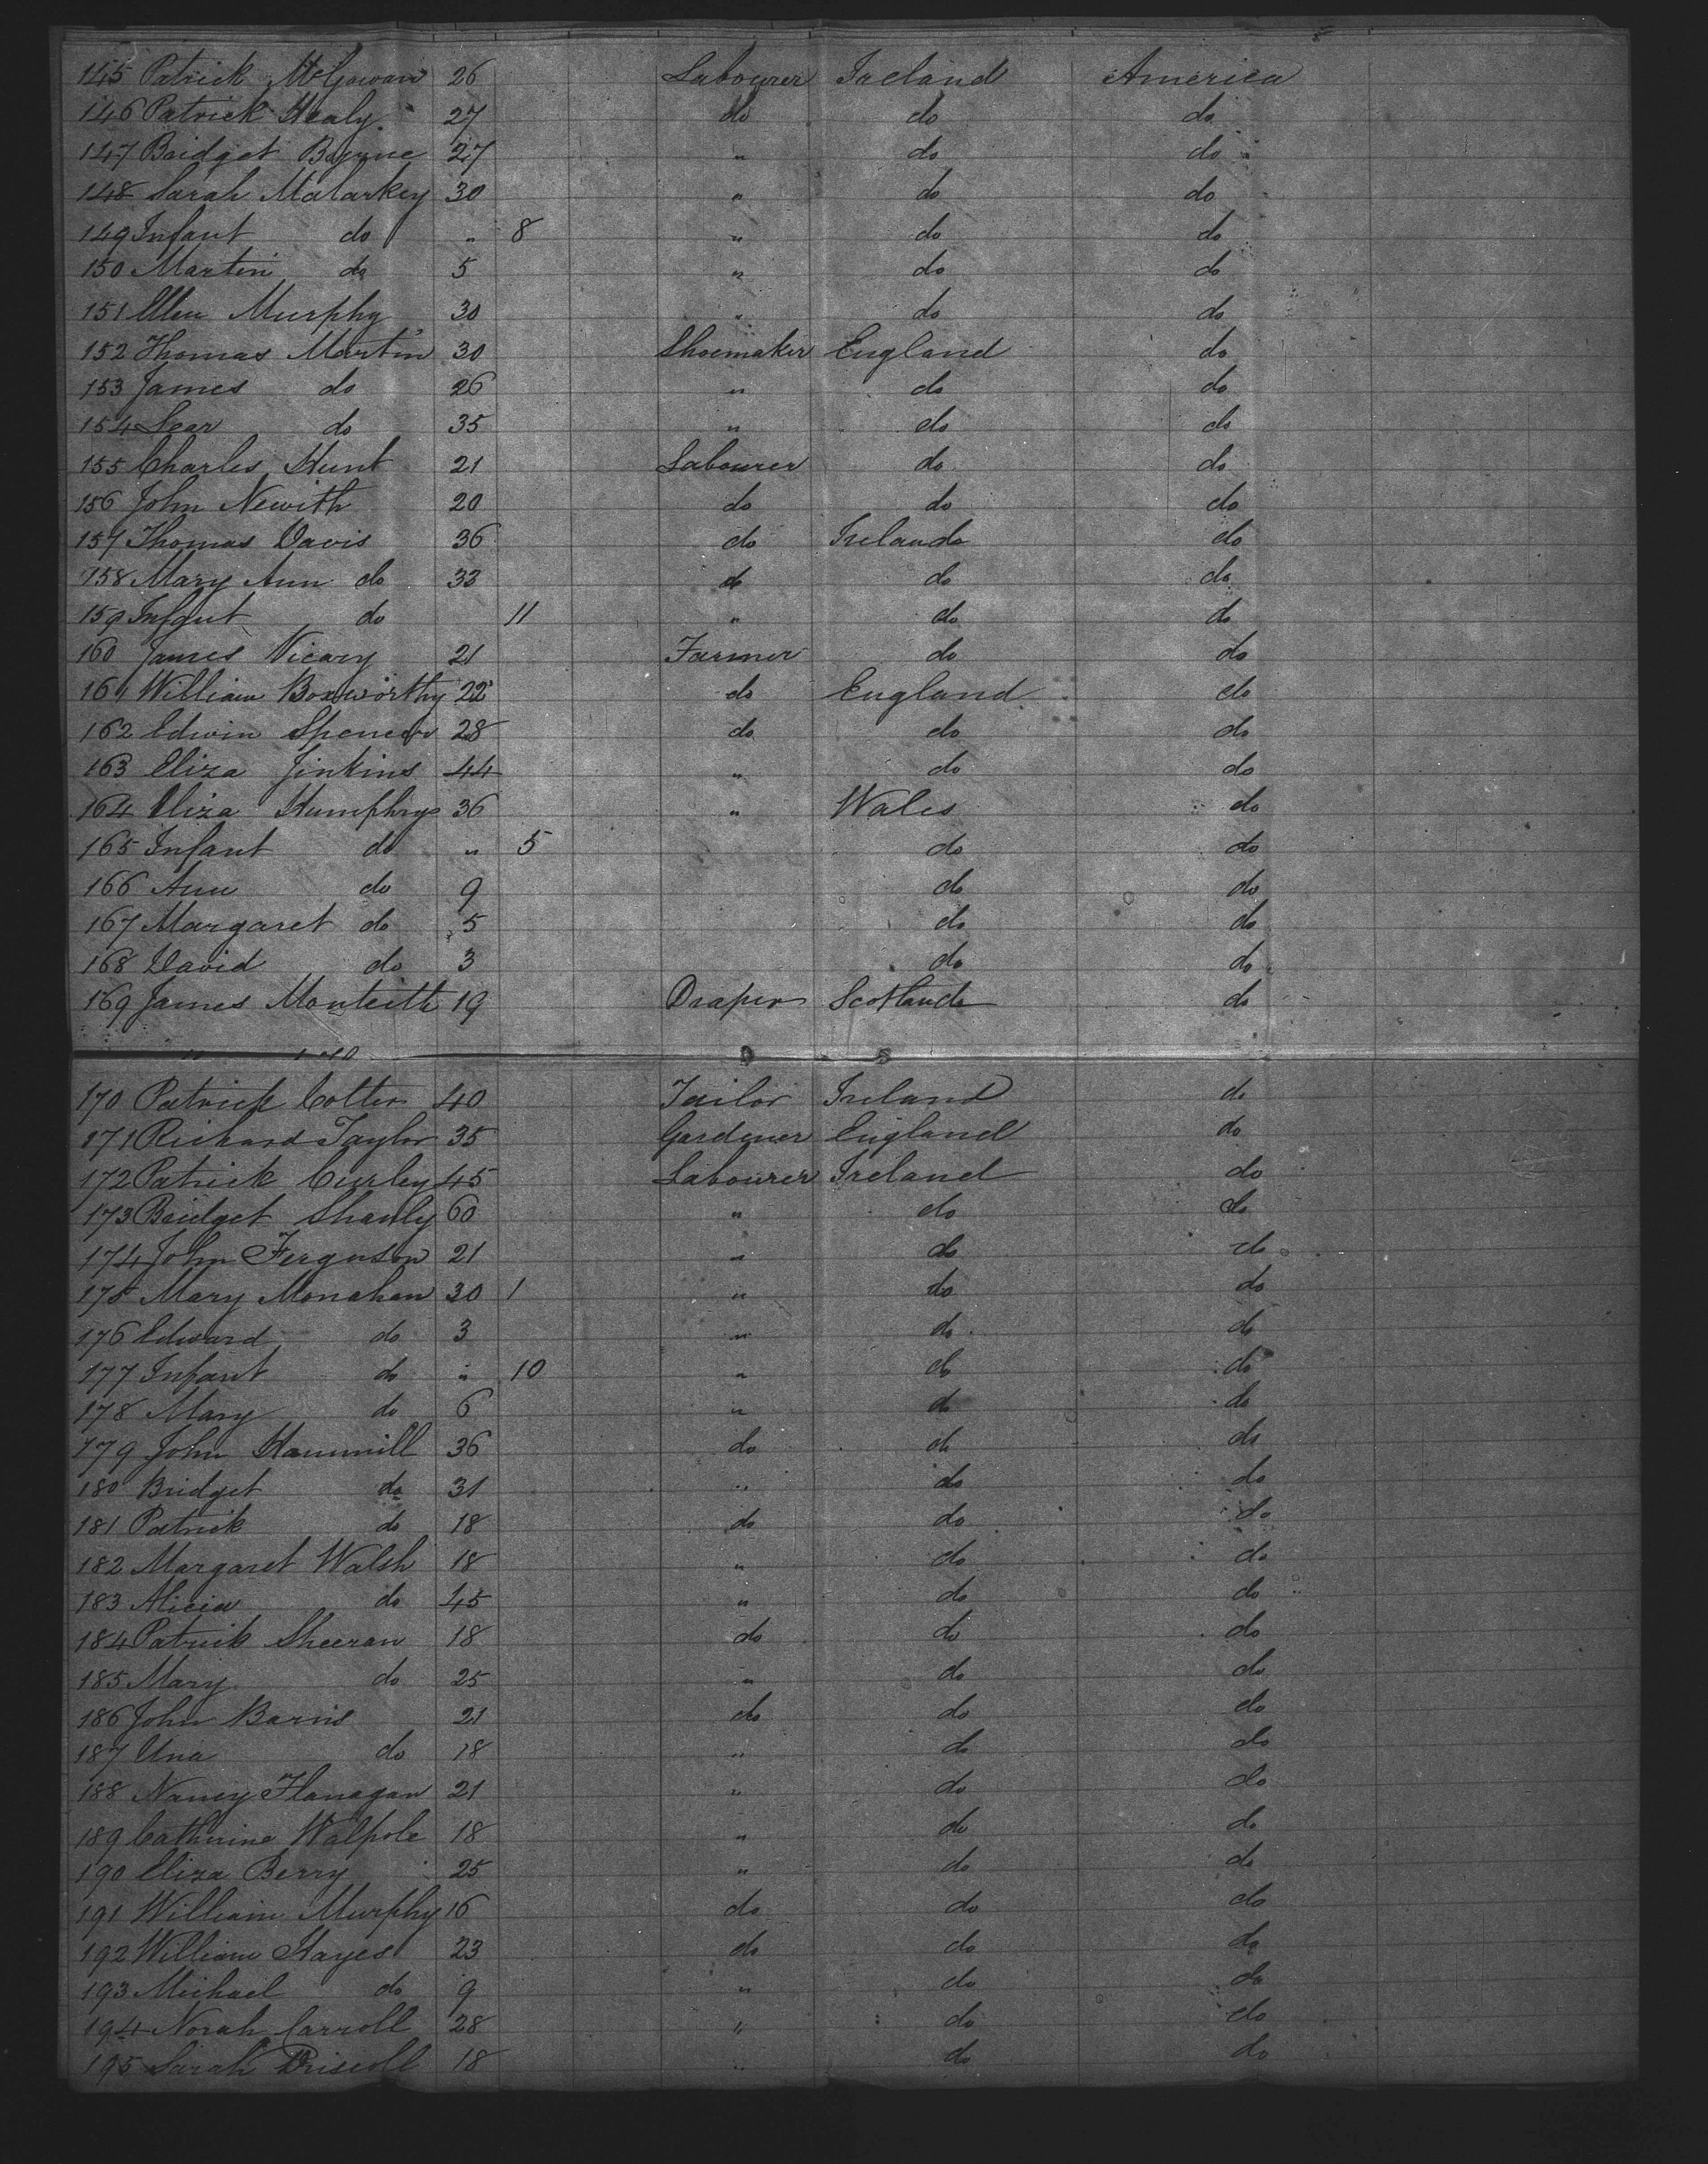 145 Patrick McGowan 26 Labourer Ireland America
146 Patrick Healy 27 do do do
147 Bridget Byrne 27 " do do
148 Sarah Malarkey 30 " do do
149 Infant do " 8 " do do
150 Martin do 5 " do do
151 Ellen Murphy 30 " do do
152 Thomas Martin 30 Shoemaker England do
153 James do 26 " do do
154 do 35 " do do
155 Charles Hunt 21 Labourer do do
156 John Newith 20 do do do
157 Thomas Davis 36 do Ireland do
158 Mary Ann do 33 do do do
159 Infant do 11 " do do
160 James Vicary 21 Farmer do do
161 William Boxworthy 22 do England do
162 Edwin Spencer 28 do do do
163 Eliza Jinkins 44 " do do
164 Eliza Humphrys 36 " Wales do
165 Infant do " 5 do do
166 Ann do 9 do do
167 Margaret do 5 do do
168 David do 3 do do
169 James Monteith 19 Draper Scotland do
170 Patrick Cotter 40 Tailor Ireland do
171 Richard Taylor 35 Gardener England do
172 Patrick Curley 45 Labourer Ireland do
173 Bridget Shanly 60 " do do
174 John Ferguson 21 " do do
175 Mary Monahan 30 1 " do do
176 Edward do 3 " do do
177 Infant do " 10 " do do
178 Mary do 6 " do do
179 John Hammill 36 do do do
180 Bridget do 31 " do do
181 Patrick do 18 do do do
182 Margaret Walsh 18 " do do
183 Alicia do 45 " do do
184 Patrick Sheeran 18 do do do
185 Mary do 25 " do do
186 John Barns 21 do do do
187 Una do 18 " do do
188 Nancy Flanagan 21 " do do
189 Catherine Walpole 18 " do do
190 Eliza Berry 25 " do do
191 William Murphy 16 do do do
192 William Hayes 23 do do do
193 Michael do 9 " do do
194 Norah Carroll 28 " do do
195 Sarah Driscoll 18 " do do